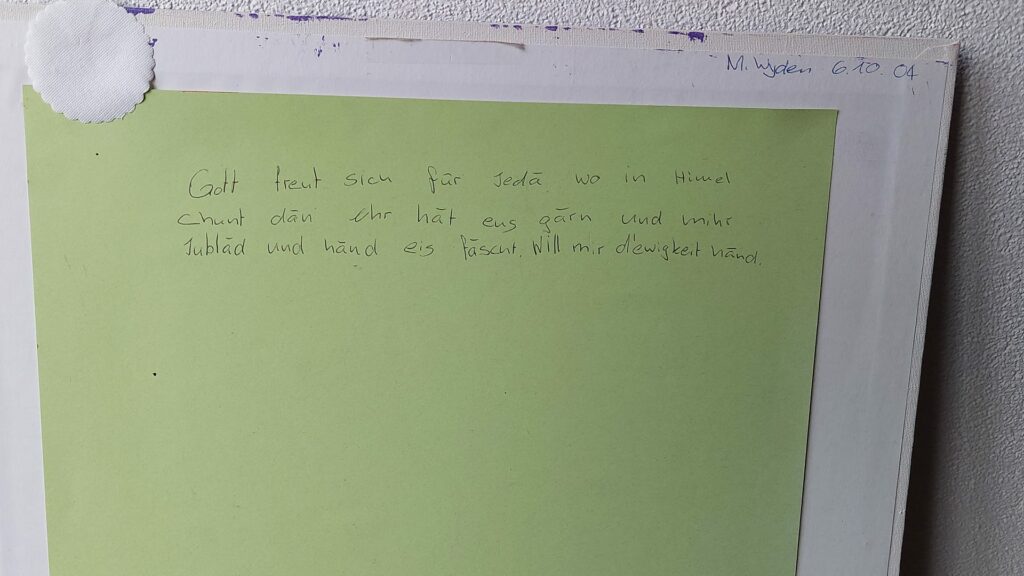 M. Wyden 6.10.04
Gott freut sich für Jedä wo in Himel
chunt dän Ehr hät eus gärn und mihr
Jubläd und händ eis fäscht. Will mir d'ewigkeit händ.